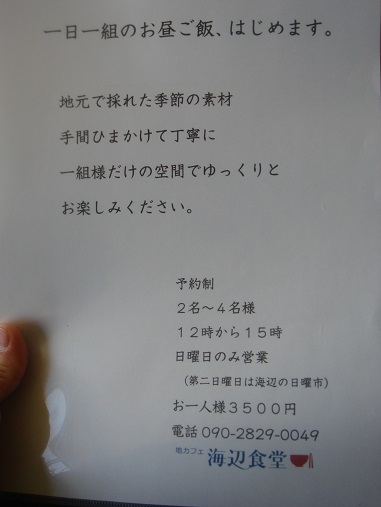 一日一組のお昼ご飯、はじめます。
地元で採れた季節の素材
手間ひまかけて丁寧に
一組様だけの空間でゆっくりと
お楽しみください。
予約制
２名～４名様
１２時から１５時
日曜日のみ営業
（第二日曜日は海辺の日曜市）
お一人様３５００円
電話 090-2829-0049
地カフェ 海辺食堂